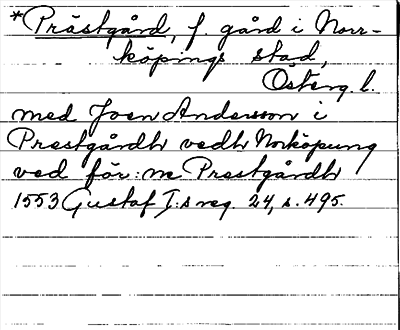 *Prästgård, f. gård i Norr-
köpings stad,
Österg. l.
med Joen Andersson i
Prestgårdh vedh Norköpung
ved för: m Prestgårdh
1553 Gustaf I:s reg. 24, s. 495.